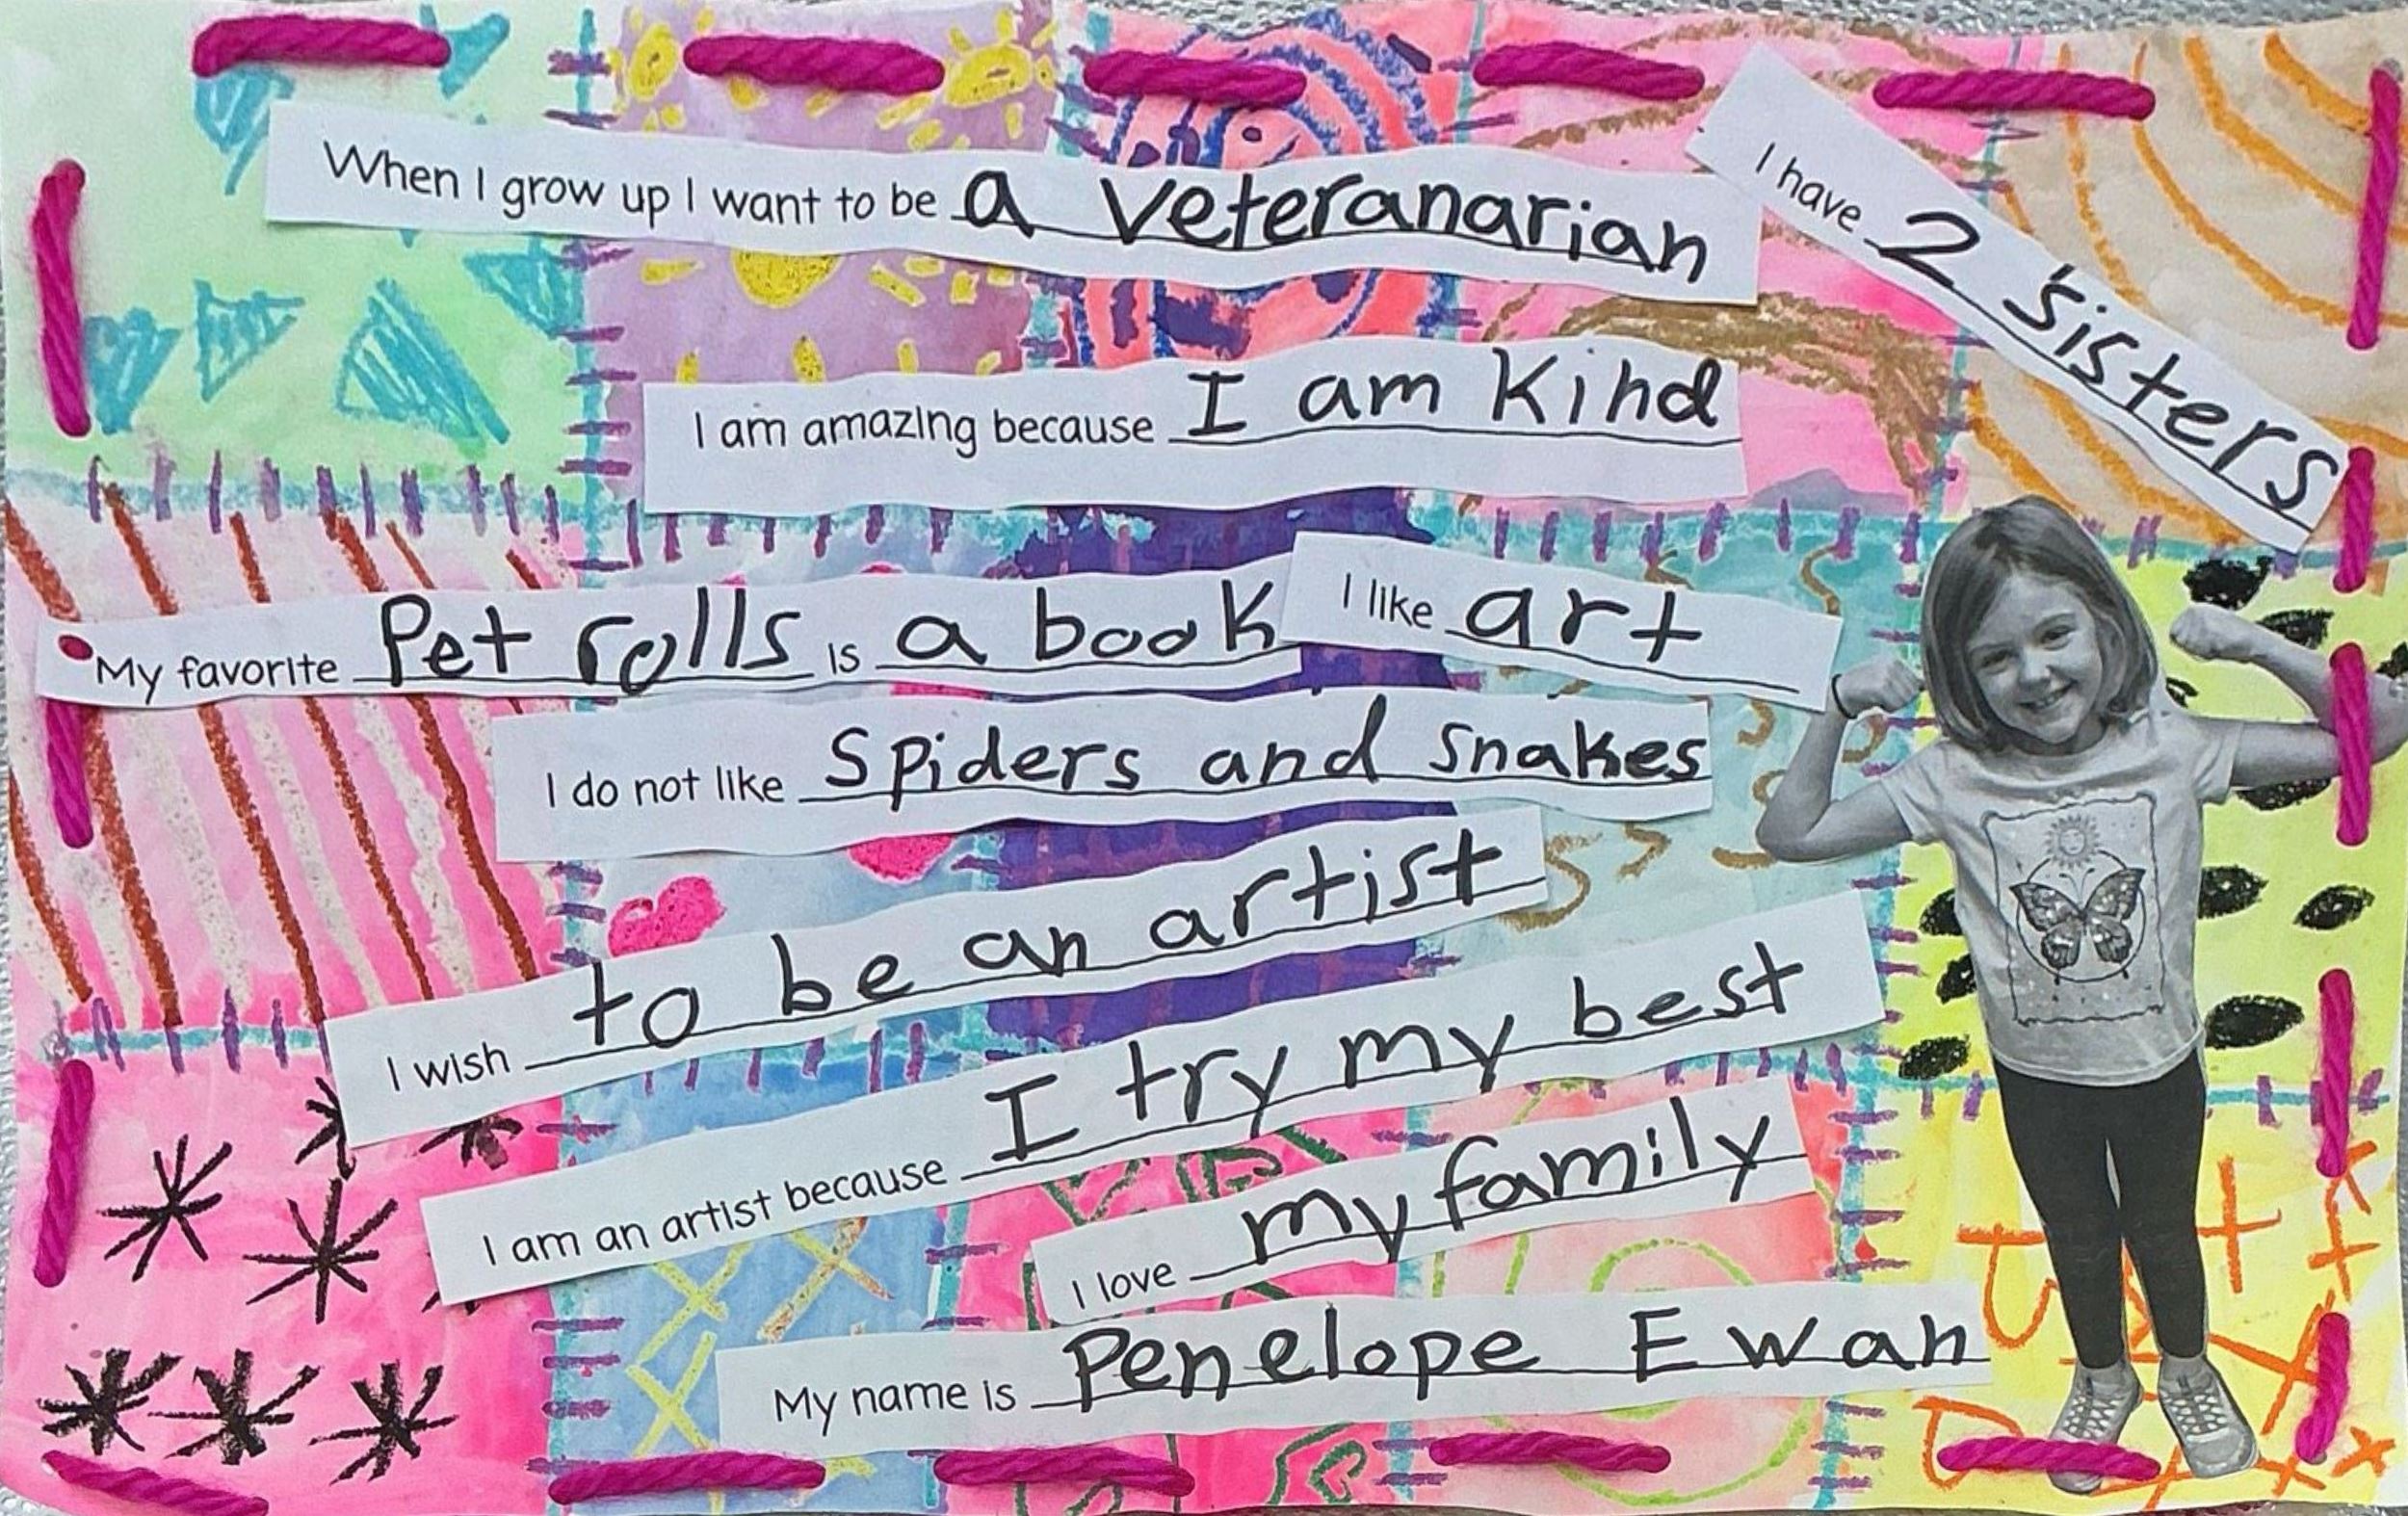 When I grow up I want to be a veteranarian
I have 2 sisters
I am amazing because I am Kind
My favorite Pet rolls is a book
I like art
I do not like Spiders and Snakes
I wish to be an artist
I am an artist because I try my best
I love my family
My name is Penelope Ewan